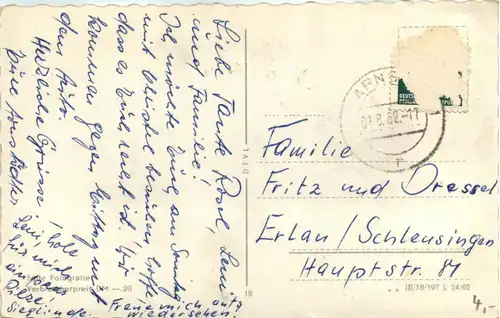 Liebe Tante Rosl, Leni
und Familie!
Ich möchte Euch am Sonntag
mit Christel besuchen, hoffe
dass es Euch recht ist. Wir
kommen gegen Mittag mit
dem Auto.
Herzliche Grüsse
Eure
Leni, hole
für mich
Pilze!
Sieglinde.
Freue mich aufs
wiedersehen!
Echte Fotografie
Verbraucherpreis DM —.20
18
ARNS
01.8.62.-17
DEUTSCHE
Familie
Fritz und Dressel
Erlau / Schleusingen
Hauptstr. 81
III/18/197 L 24/62
4,-